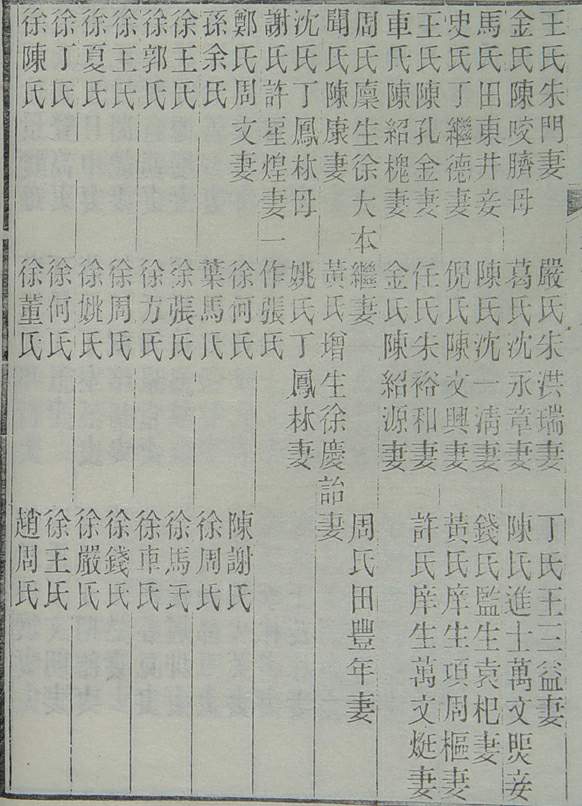 王氏朱門妻 嚴氏朱洪瑞妻 丁氏王三益妻
金氏陳咬臍母 葛氏沈永章妻 陳氏進士萬文煚妾
馬氏田東井妾 陳氏沈一清妻 錢氏監生袁杞妻
史氏丁繼德妻 倪氏陳文興妻 黃氏庠生項周樞妻
王氏陳孔金妻 任氏朱裕和妻 許氏庠生萬文烶妻
車氏陳紹槐妻 金氏陳紹源妻
周氏廩生徐大本繼妻 周氏田豐年妻
聞氏陳康妻 黃氏增生徐慶詒妻
沈氏丁鳳林母 姚氏丁鳳林妻
謝氏許星煌妻一作張氏
鄭氏周文妻 徐何氏 陳謝氏
孫余氏 葉馬氏 徐周氏
徐王氏 徐張氏 徐馬氏
徐郭氏 徐方氏 徐車氏
徐王氏 徐周氏 徐錢氏
徐夏氏 徐姚氏 徐嚴氏
徐丁氏 徐何氏 徐王氏
徐陳氏 徐董氏 趙周氏